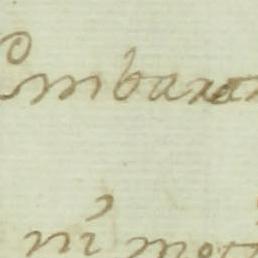 Embaraz
ni mor